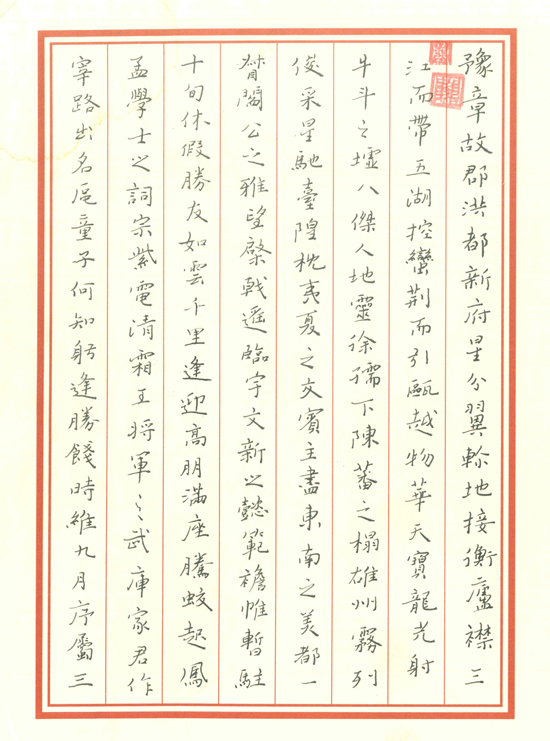 豫章故郡洪都新府星分翼軫地接衡廬襟三
江而帶五湖控蠻荊而引甌越物華天寶龍光射
牛斗之墟八傑人地靈徐孺下陳蕃之榻雄州霧列
俊采星馳臺隍枕夷夏之交賓主盡東南之美都一
督閻公之雅望棨戟遙臨宇文新之懿範襜帷暫駐
十旬休假勝友如雲千里逢迎高朋滿座騰蛟起鳳
孟學士之詞宗紫電清霜王將軍之武庫家君作
宰路出名區童子何知躬逢勝餞時維九月序屬三